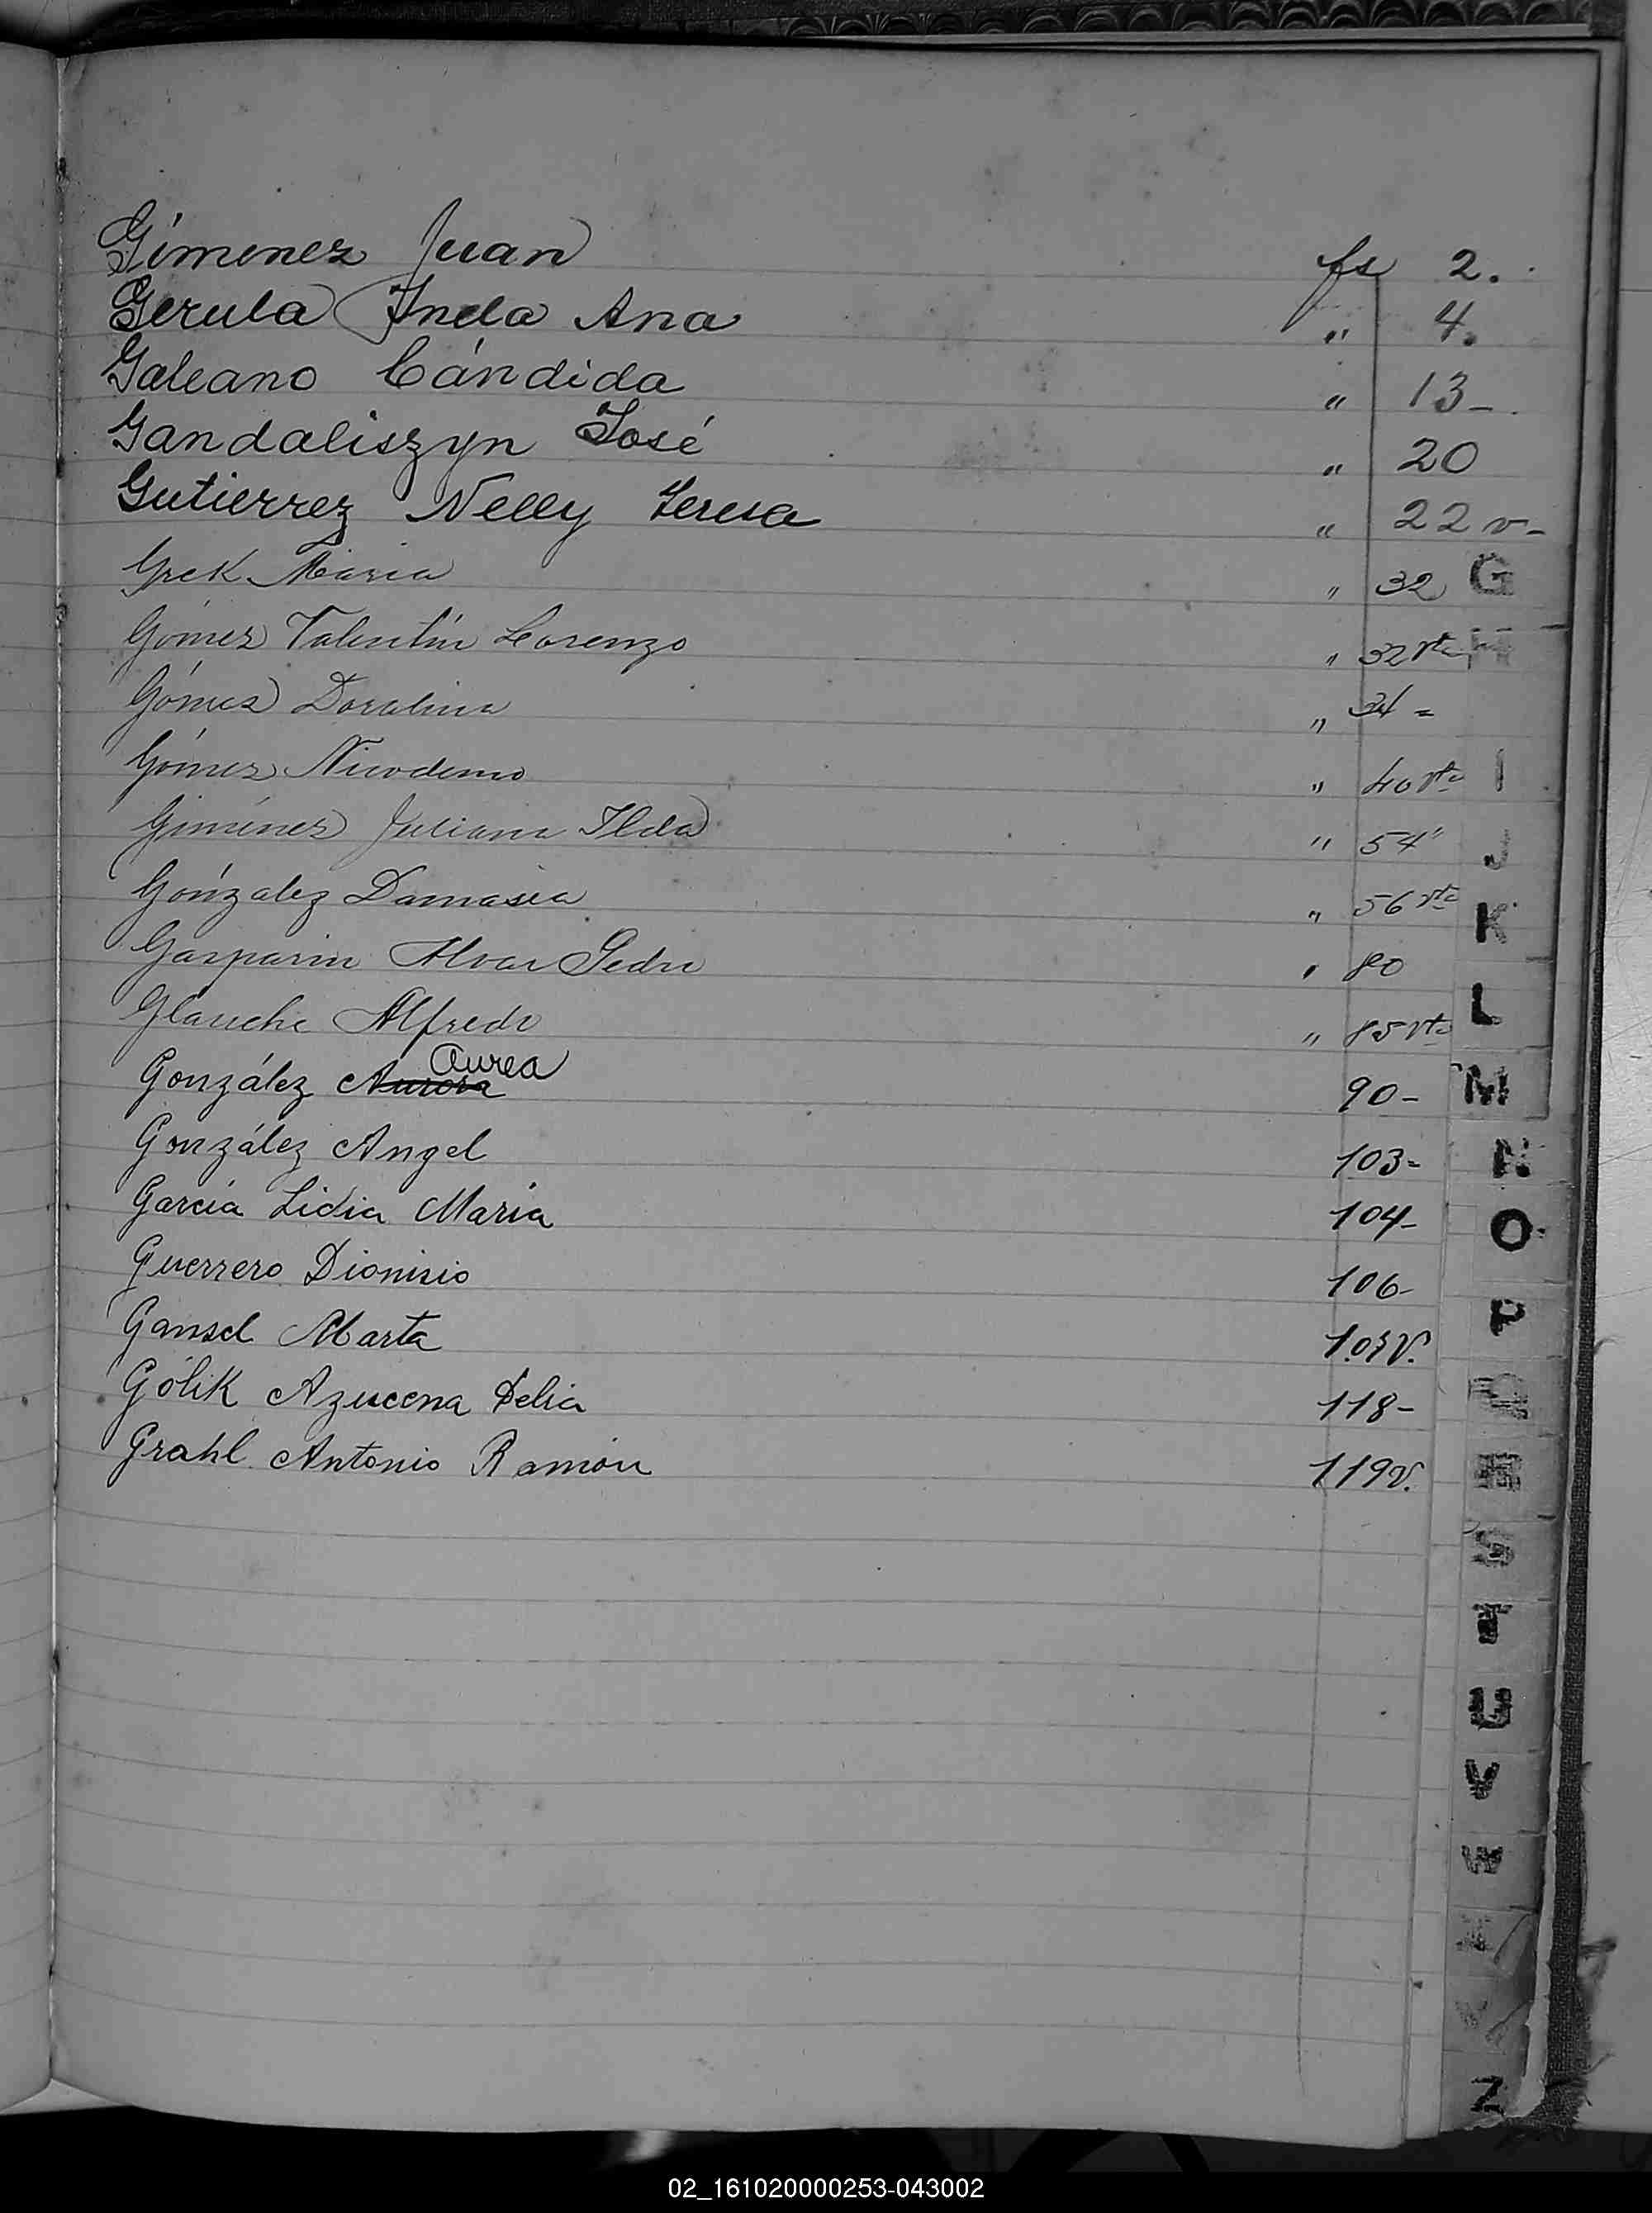 Gimenez Juan fs 2.
Gerula Inela Ana " 4.
Galeano Cándida " 13-.
Gandaliszyn José " 20
Gutierrez Nelly Teresa " 22 v-
Grek Maria " 32
Gómez Valentín Lorenzo " 32 vta
Gómez Doralina " 34 =
Gómez Nicodemo " 40 vta
Giménez Juliana Ilda " 54
González Damasia " 56 vta
Gasparin Alvar Pedro " 80
Glauche Alfredo " 85 vta
Aurea
González Aurora 90-
González Angel 103-
García Lidia María 104-
Guerrero Dionisio 106-
Gansel Marta
Gólik Azucena Delia 118-
Grahl Antonio Ramón 119v.
G
H
I
J
K
L
M
N
O
P
Q
R
S
T
U
V
W
Z
02_161020000253-043002